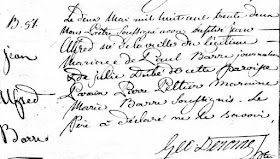 B. 51.
jean
Alfred
Barre
Le deux Mai mil huit cent trente deux
Nous Prêtre Soussigné avons baptisé jean
Alfred né de la veille du légitime
Mariage de Paul Barre journalier
et de julie de cette paroisse
Parain Pierre Marraine
Marie Barre Soussignés. Le
Père a déclaré ne le savoir.
Geo